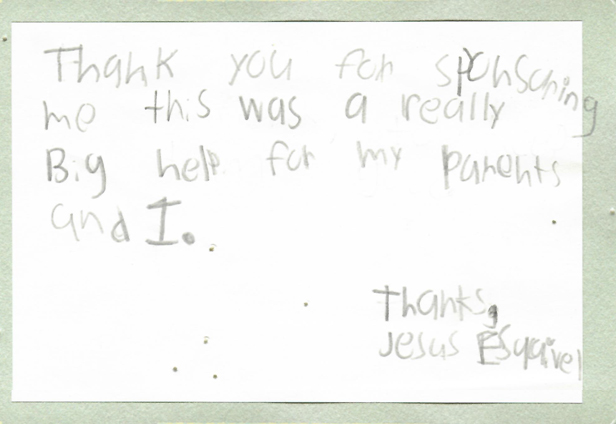 Thank you for sponsoring
me this was a really
Big help for my parents
and I.
Thanks,
Jesus Esquivel